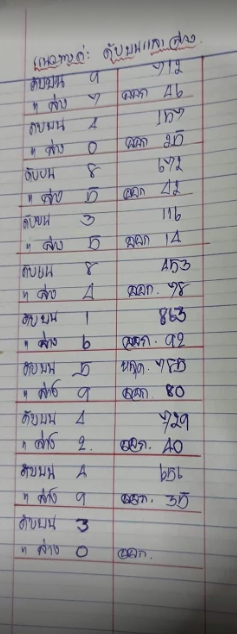 แนวทาง: ดับบนและล่าง
ดับบน 9 712
" ล่าง 7 ออก 46
ดับบน 4 157
" ล่าง 0 ออก 25
ดับบน 8 672
" ล่าง 5 ออก 42
ดับบน 3 116
" ล่าง 5 ออก 14
ดับบน 8 453
" ล่าง 4 ออก. 78
ดับบน 1 863
" ล่าง 6 ออก. 92
ดับบน 5 785
" ล่าง 9 ออก 80
ดับบน 4 729
" ล่าง 2. ออก. 40
ดับบน 4 656
" ล่าง 9 ออก. 35
ดับบน 3
" ล่าง 0 ออก.